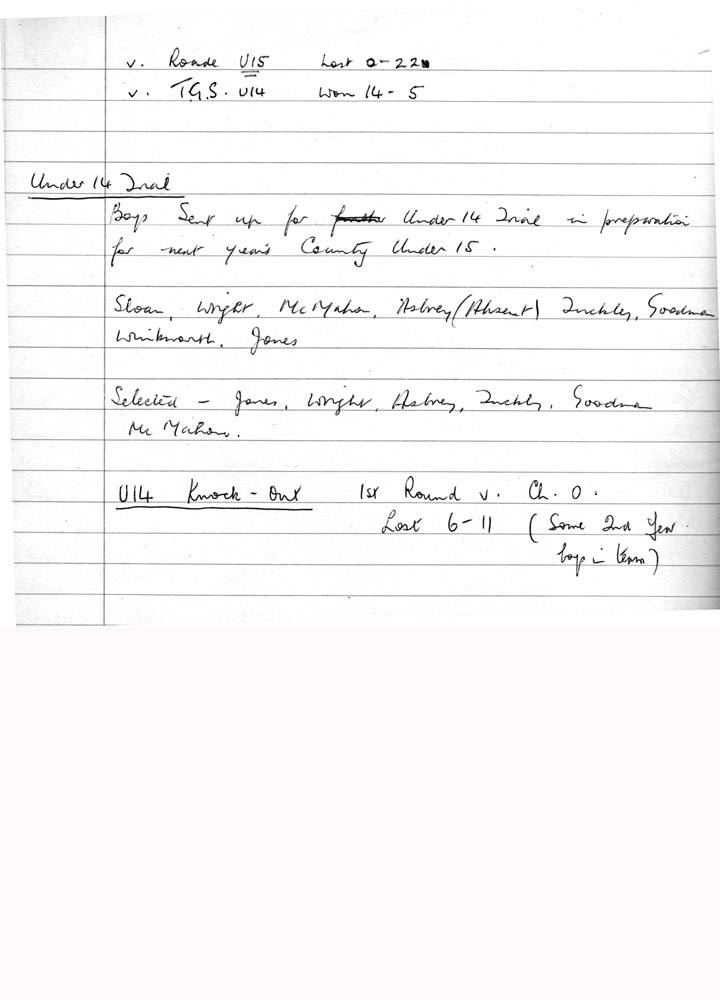 v. Roade U15 Lost 0-22
v. T.G.S. U14 Won 14-5
Under 14 Trial
Boys Sent up for Under 14 Trial in preparation
for next year's County Under 15.
Sloan, Wright, McMahon, Asbrey (Absent) Tuckley, Goodman
Winkworth, Jones
Selected - Jones, Wright, Asbrey, Tuckley, Goodman
McMahon.
U14 Knock-Out 1st Round v. Ch. O.
Lost 6-11 (Some 2nd Year
boys in team)